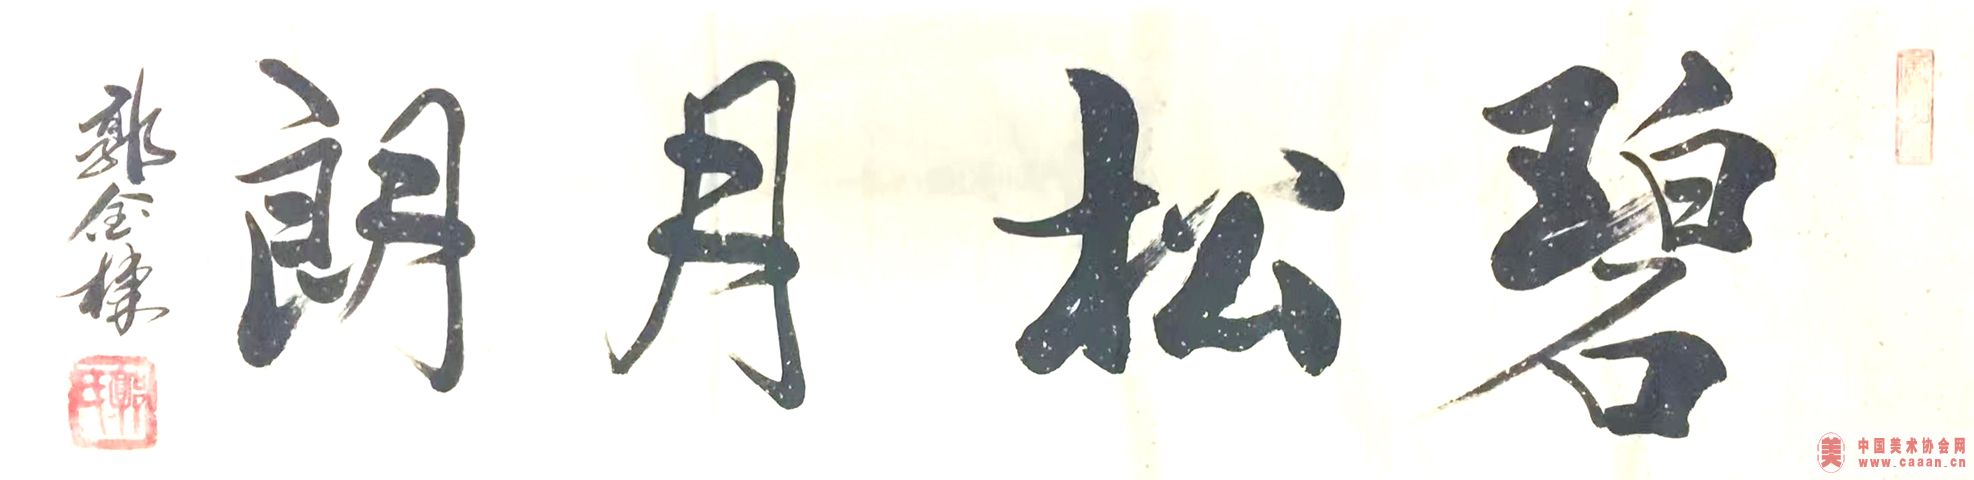 碧松月朗
郭全梁
美
中国美术协会网
www.caaan.cn